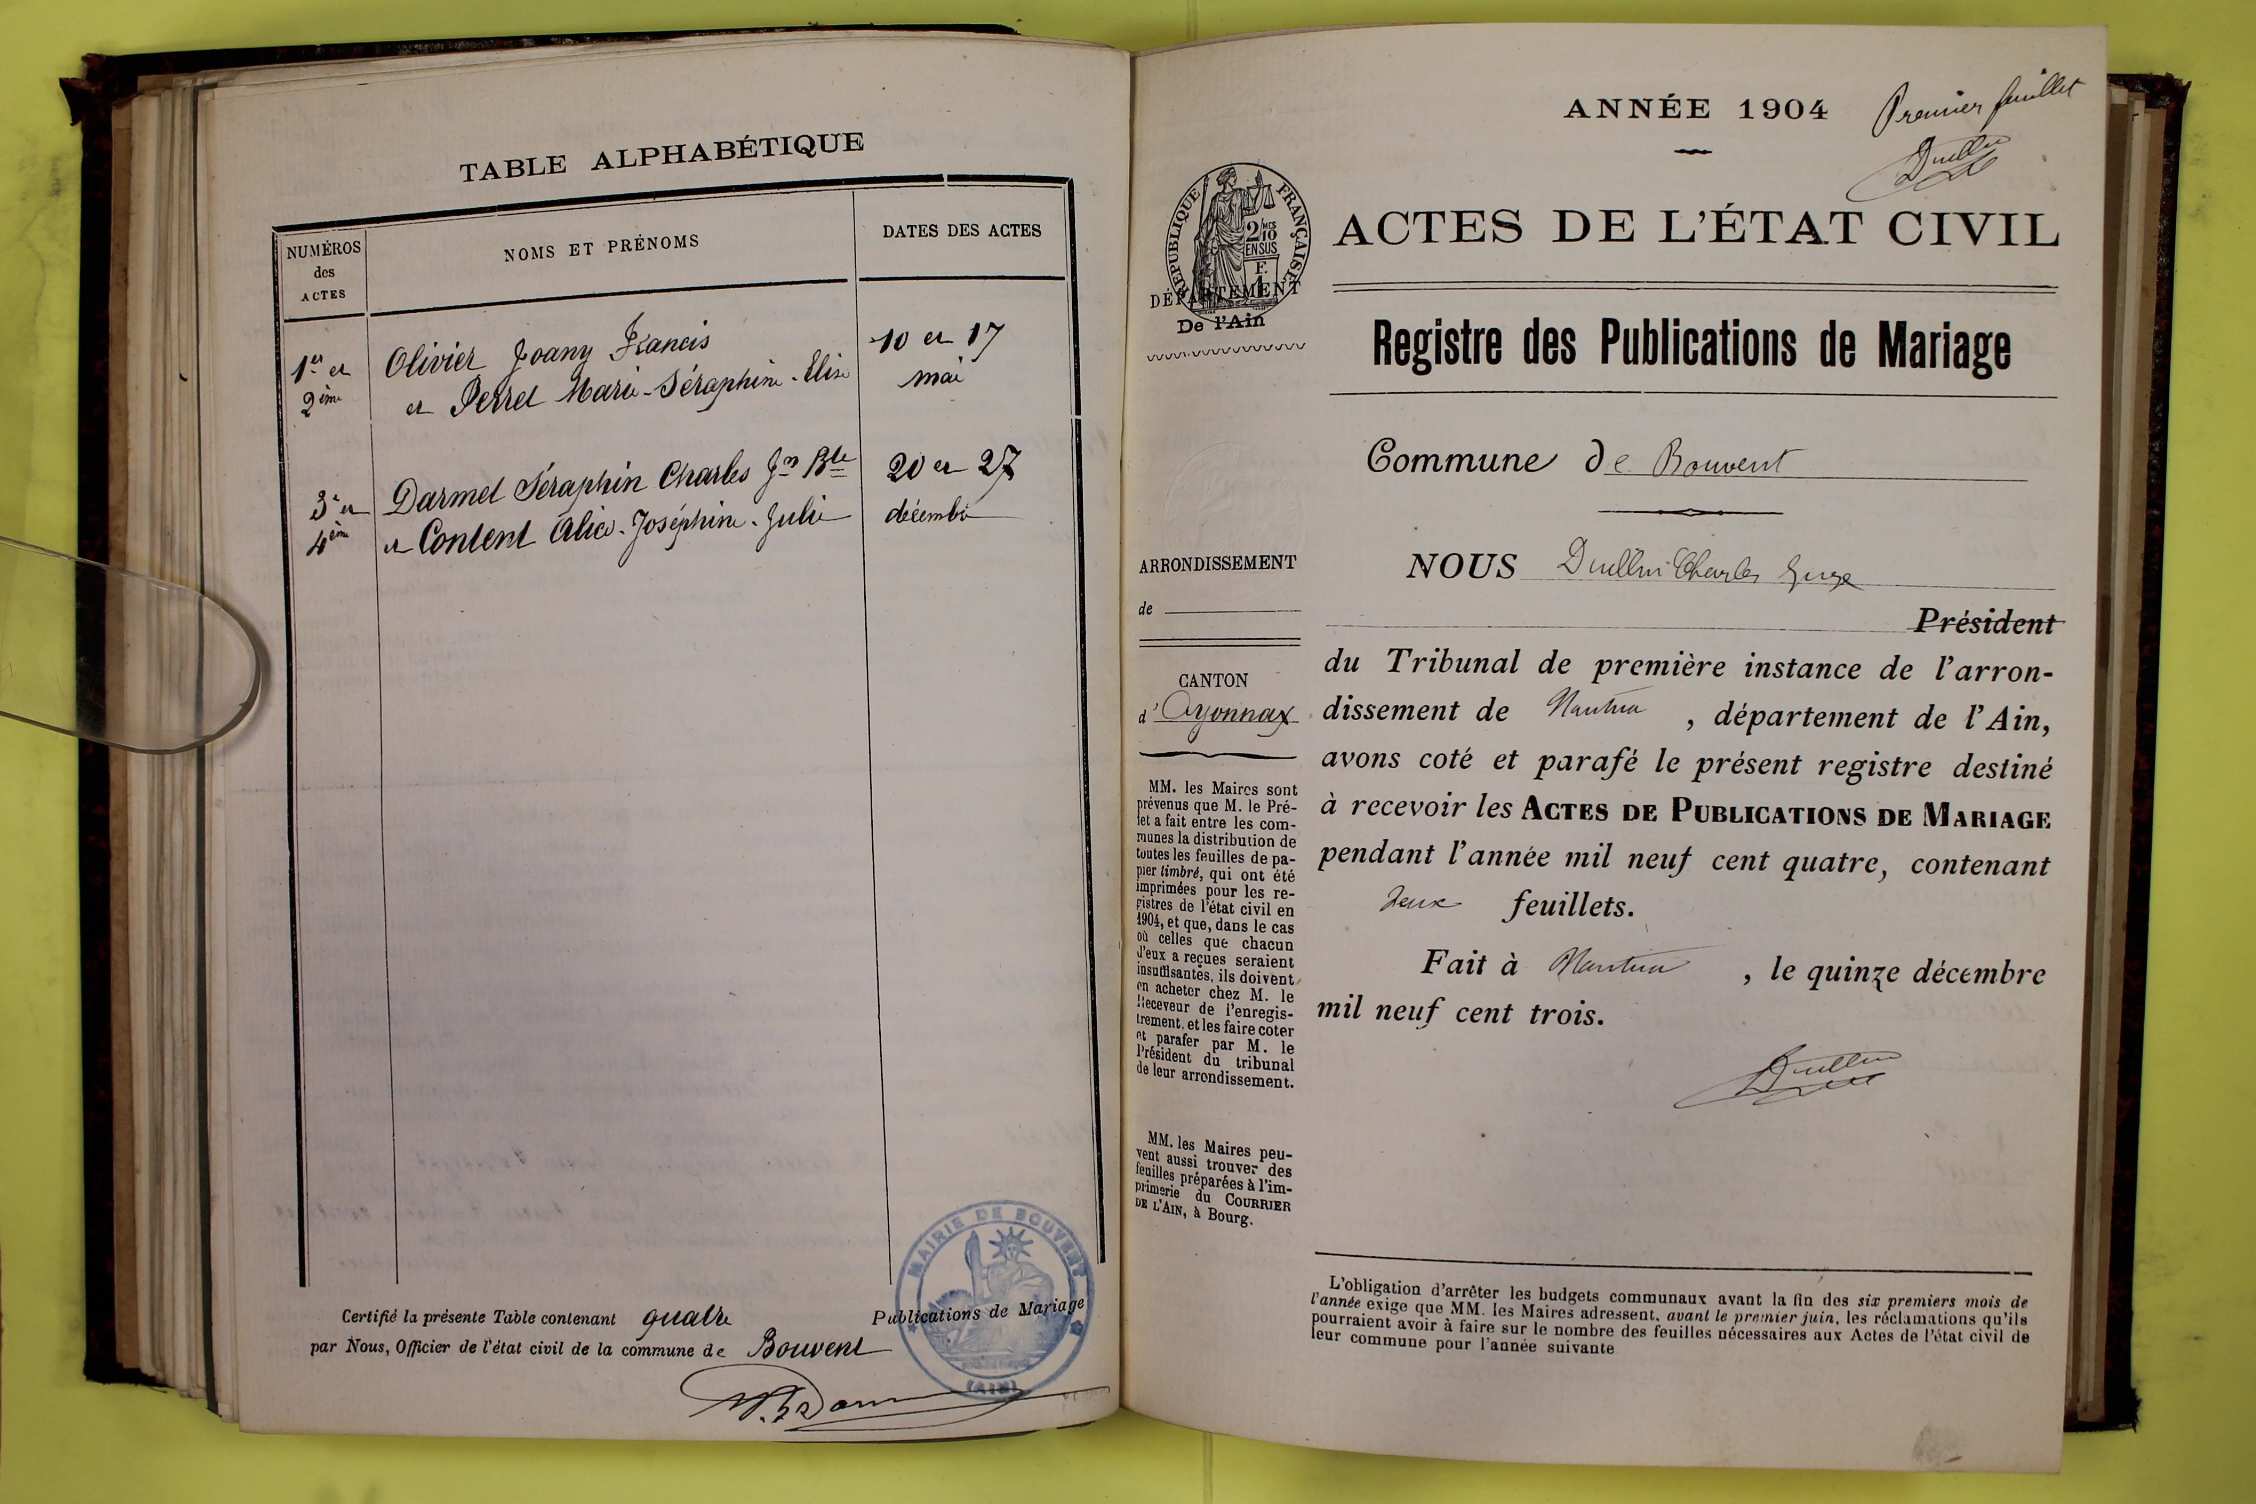 TABLE ALPHABÉTIQUE
NUMÉROS
des
ACTES
NOMS ET PRÉNOMS
DATES DES ACTES
1er et
2ème
Olivier Joany Francis
et Perret Marie-Séraphine-Elise
10 et 17
mai
3e et
4ème
Darmet Séraphin Charles Jn Bte
et Content Alice-Joséphine-Julie
20 et 27
décembre
Certifié la présente Table contenant quatre Publications de Mariage
par Nous, Officier de l'état civil de la commune de Bouvent
MAIRIE DE BOUVENT
(AIN)
ANNÉE 1904
Premier feuillet
Duillin
RÉPUBLIQUE FRANÇAISE
2/10 MES
EN SUS
F.
1
DÉPARTEMENT
De l'Ain
ACTES DE L'ÉTAT CIVIL
Registre des Publications de Mariage
Commune de Bouvent
ARRONDISSEMENT
de
CANTON
d'Oyonnax
MM. les Maires sont
prévenus que M. le Pré-
fet a fait entre les com-
munes la distribution de
toutes les feuilles de pa-
pier timbré, qui ont été
imprimées pour les re-
gistres de l'état civil en
1904, et que, dans le cas
où celles que chacun
d'eux a reçues seraient
insuffisantes, ils doivent
en acheter chez M. le
Receveur de l'enregis-
trement, et les faire coter
et parafer par M. le
Président du tribunal
de leur arrondissement.
MM. les Maires peu-
vent aussi trouver des
feuilles préparées à l'im-
primerie du COURRIER
DE L'AIN, à Bourg.
NOUS Duillin Charles
Président
du Tribunal de première instance de l'arron-
dissement de Nantua, département de l'Ain,
avons coté et parafé le présent registre destiné
à recevoir les ACTES DE PUBLICATIONS DE MARIAGE
pendant l'année mil neuf cent quatre, contenant
deux feuillets.
Fait à Nantua, le quinze décembre
mil neuf cent trois.
Duillin
L'obligation d'arrêter les budgets communaux avant la fin des six premiers mois de
l'année exige que MM. les Maires adressent, avant le premier juin, les réclamations qu'ils
pourraient avoir à faire sur le nombre des feuilles nécessaires aux Actes de l'état civil de
leur commune pour l'année suivante